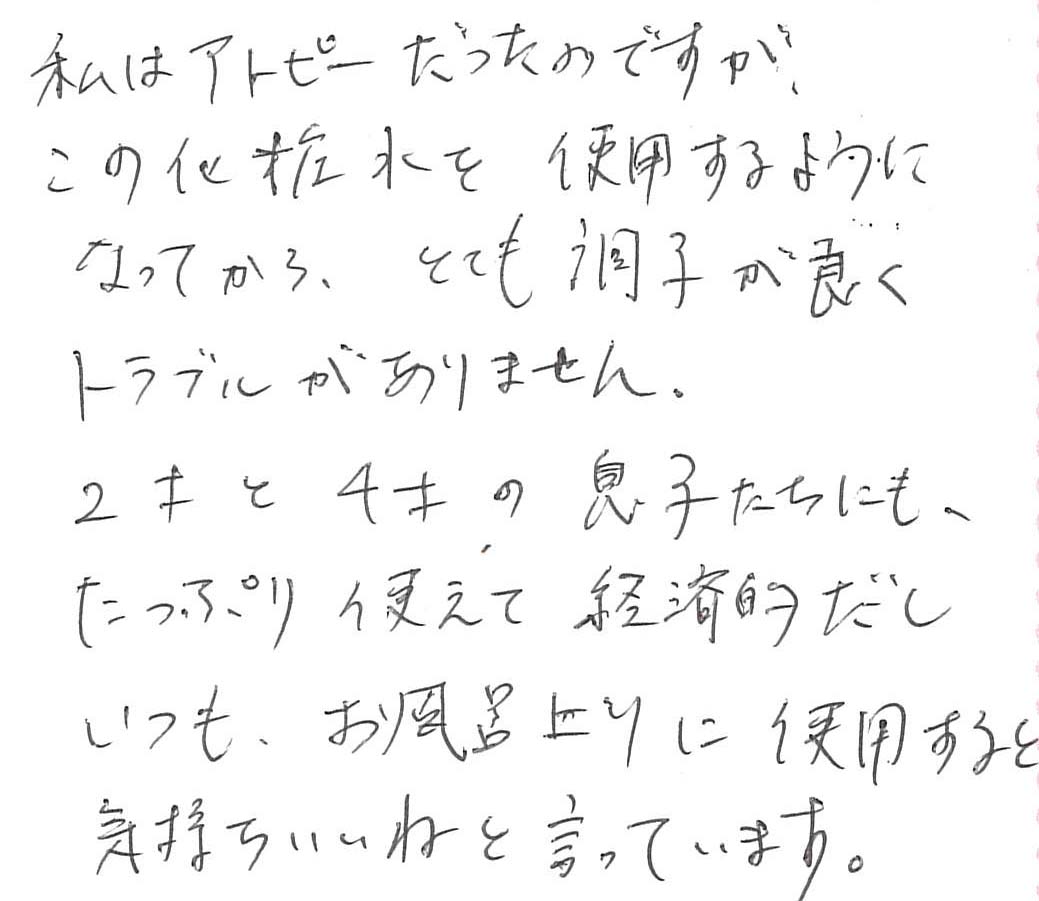 私はアトピーだったのですが、
この化粧水を 使用するように
なってから、とても調子が良く
トラブルがありません。
2才と4才の息子たちにも、
たっぷり使えて経済的だし
いつも、お風呂上りに使用すると
気持ちいいねと言っています。